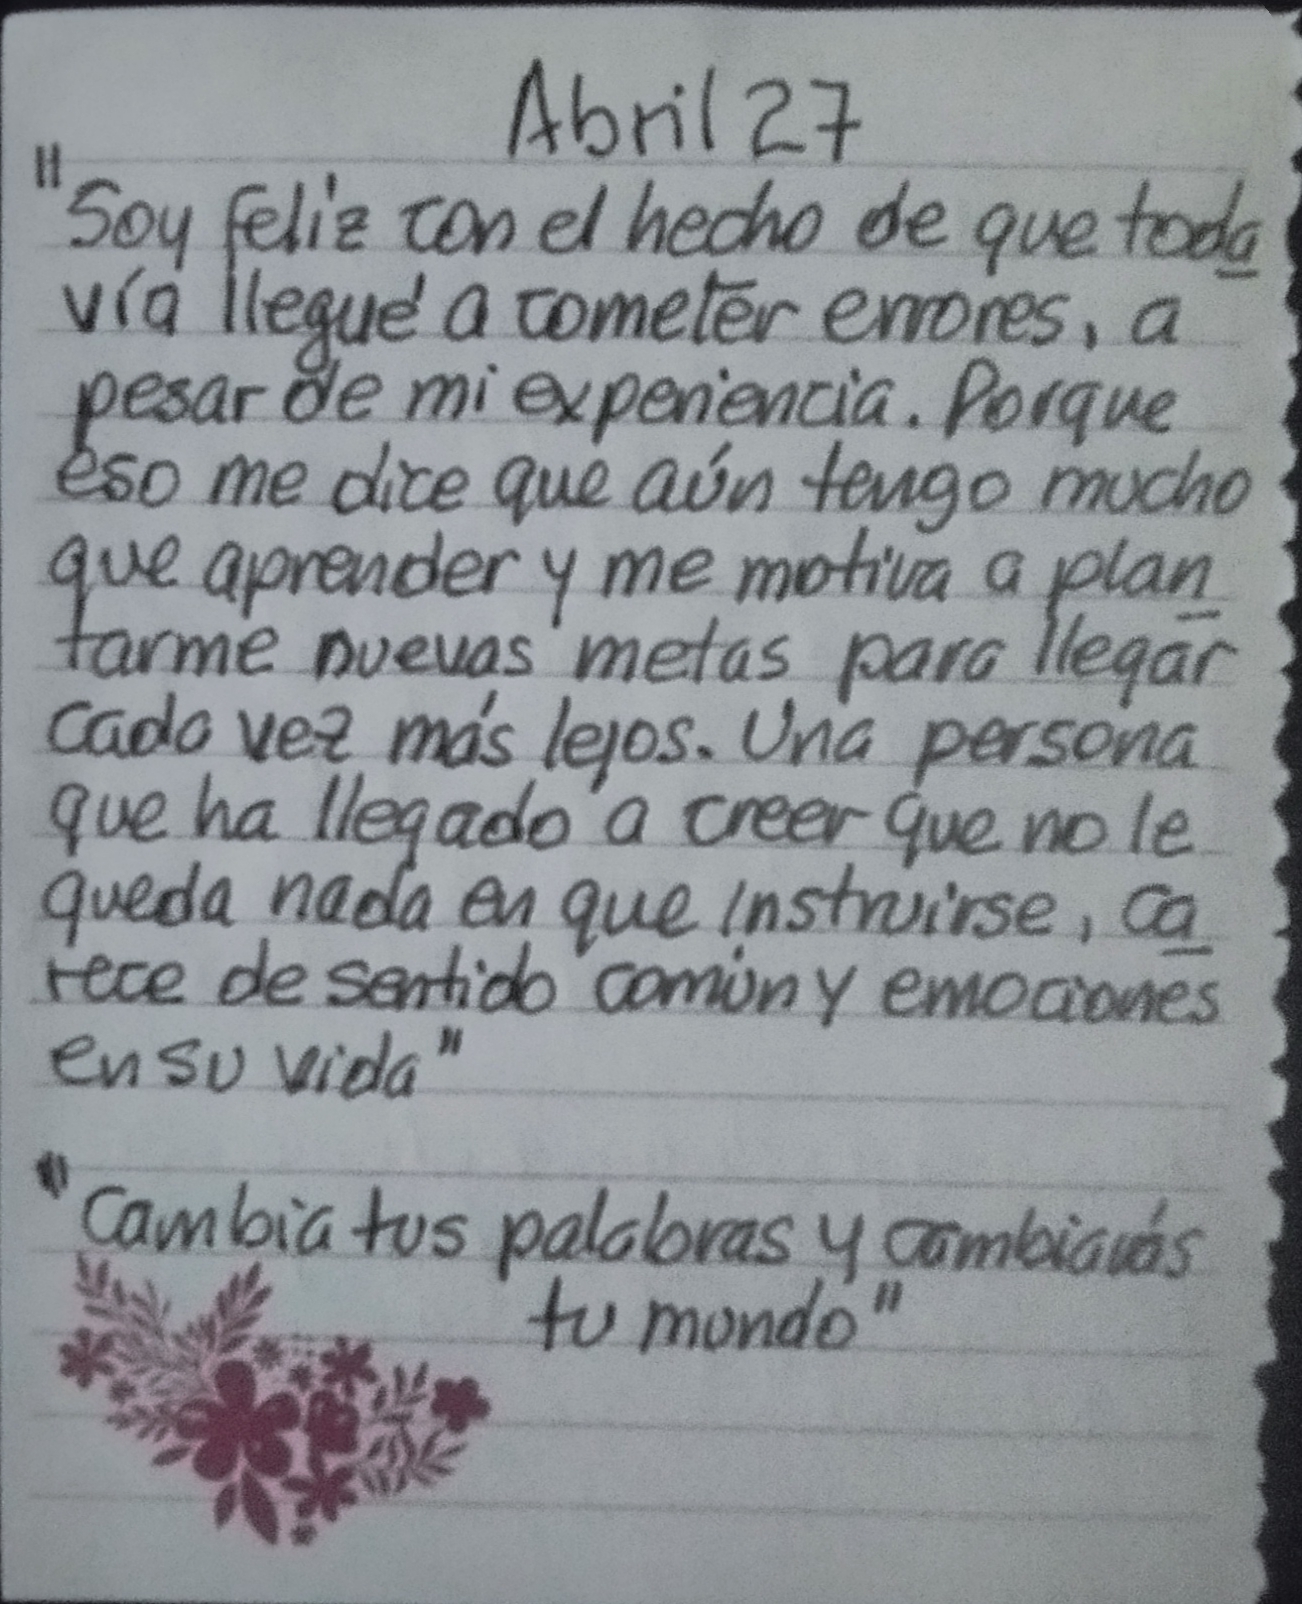 Abril 27
"Soy feliz con el hecho de que toda
vía llegué a cometer errores, a
pesar de mi experiencia. Porque
eso me dice que aún tengo mucho
que aprender y me motiva a plan
tarme nuevas metas para llegar
cada vez más lejos. Una persona
que ha llegado a creer que no le
queda nada en que instruirse, ca
rece de sentido común y emociones
en su vida"
"Cambia tus palabras y cambiarás
tu mundo"